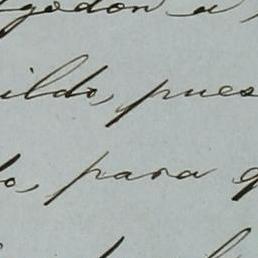 godon a
ildo, pues
lo, para q